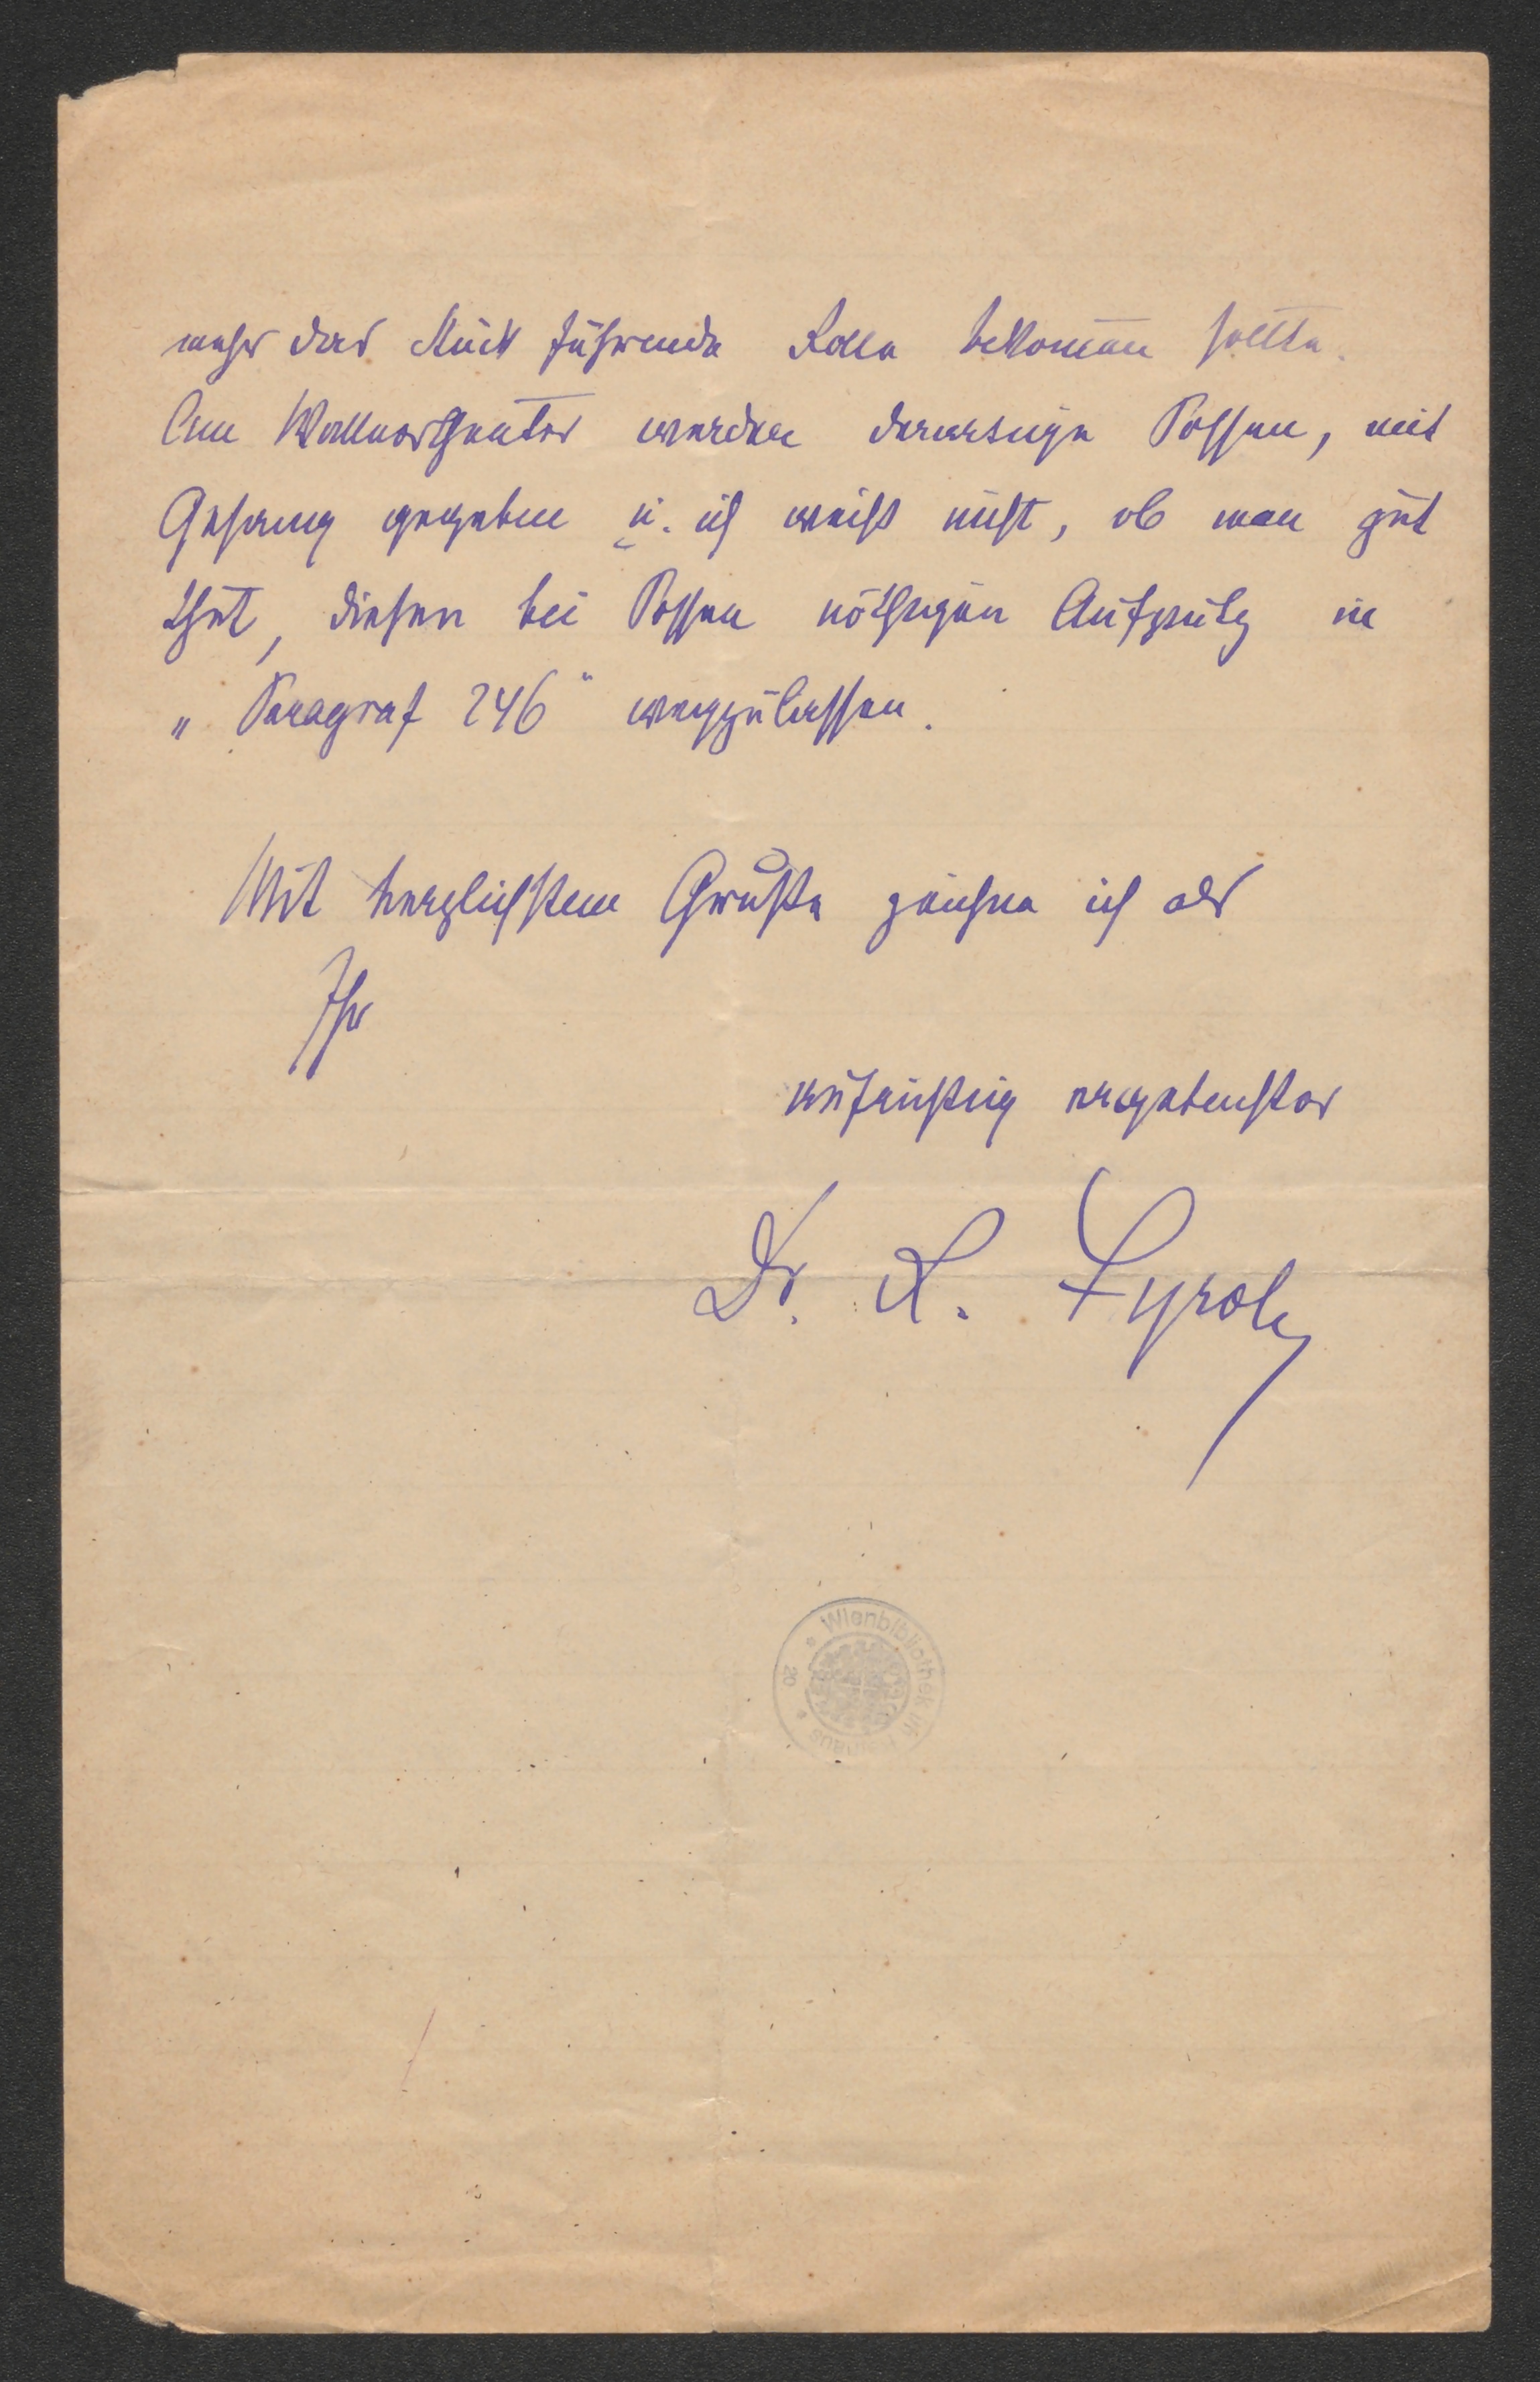 mehr das Stück führende Rolle bekom̅en sollte.
Am Wallnertheater werden derartige Possen, mit
Gesang gegeben u. ich weiß nicht, ob man gut
thut, diesen bei Possen nöthigen Aufputz in
„Paragraf 246“ wegzulassen.
Mit herzlichstem Gruße zeichne ich als
Ihr
aufrichtig ergebenster
Dr. R. Tyrolt
* Wienbibliothek im Rathaus *
20